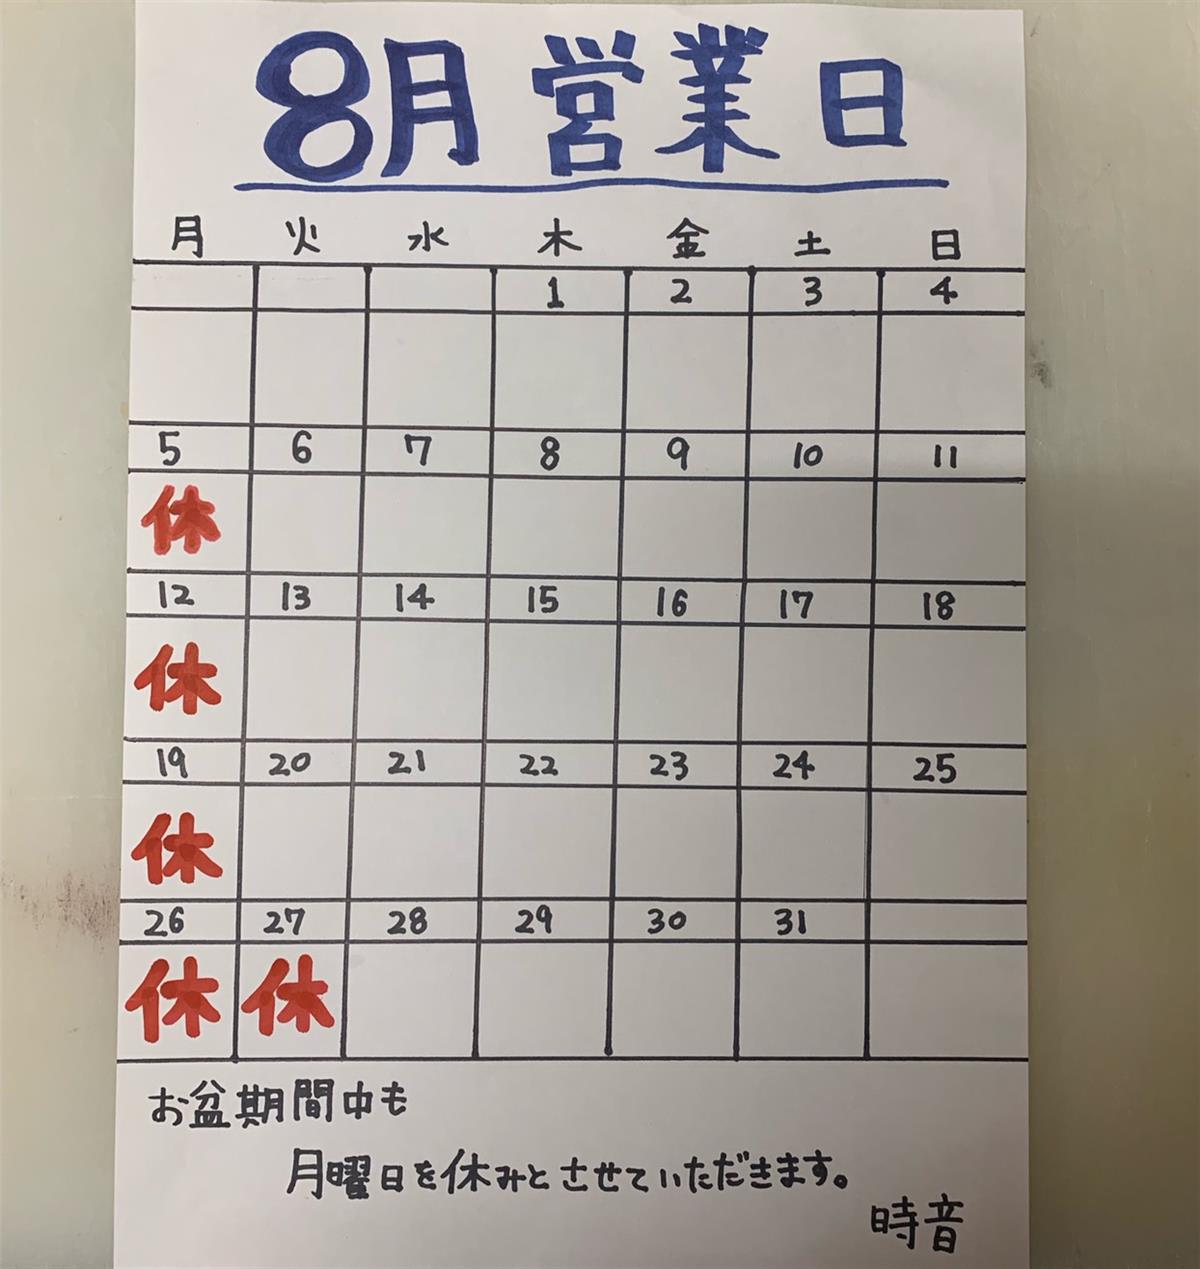 8月営業日
月 火 水 木 金 土 日
1 2 3 4
5 6 7 8 9 10 11
休
12 13 14 15 16 17 18
休
19 20 21 22 23 24 25
休
26 27 28 29 30 31
休 休
お盆期間中も
月曜日を休みとさせていただきます。
時音